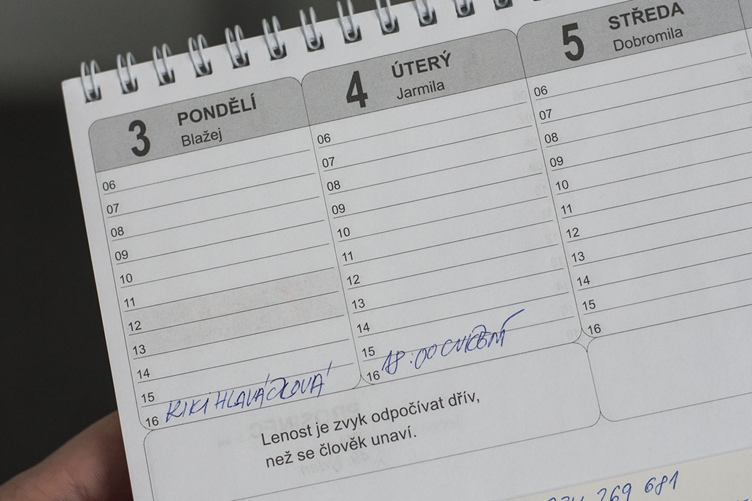 3 PONDĚLÍ
Blažej
06
07
08
09
10
11
12
13
14
15
16 KIKI HLAVÁČKOVÁ
4 ÚTERÝ
Jarmila
06
07
08
09
10
11
12
13
14
15
16 18:00 CVIČENÍ
5 STŘEDA
Dobromila
06
07
08
09
10
11
12
13
14
15
16
Lenost je zvyk odpočívat dřív,
než se člověk unaví.
269 681